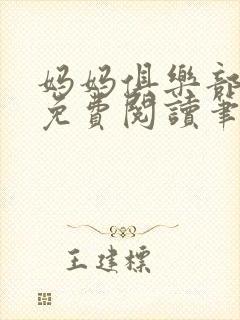 媽媽俱樂部
免費閱讀筆
王建標